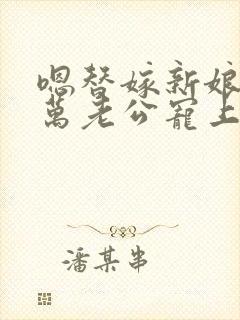 嗯替嫁新娘
萬老公寵上
潘某串